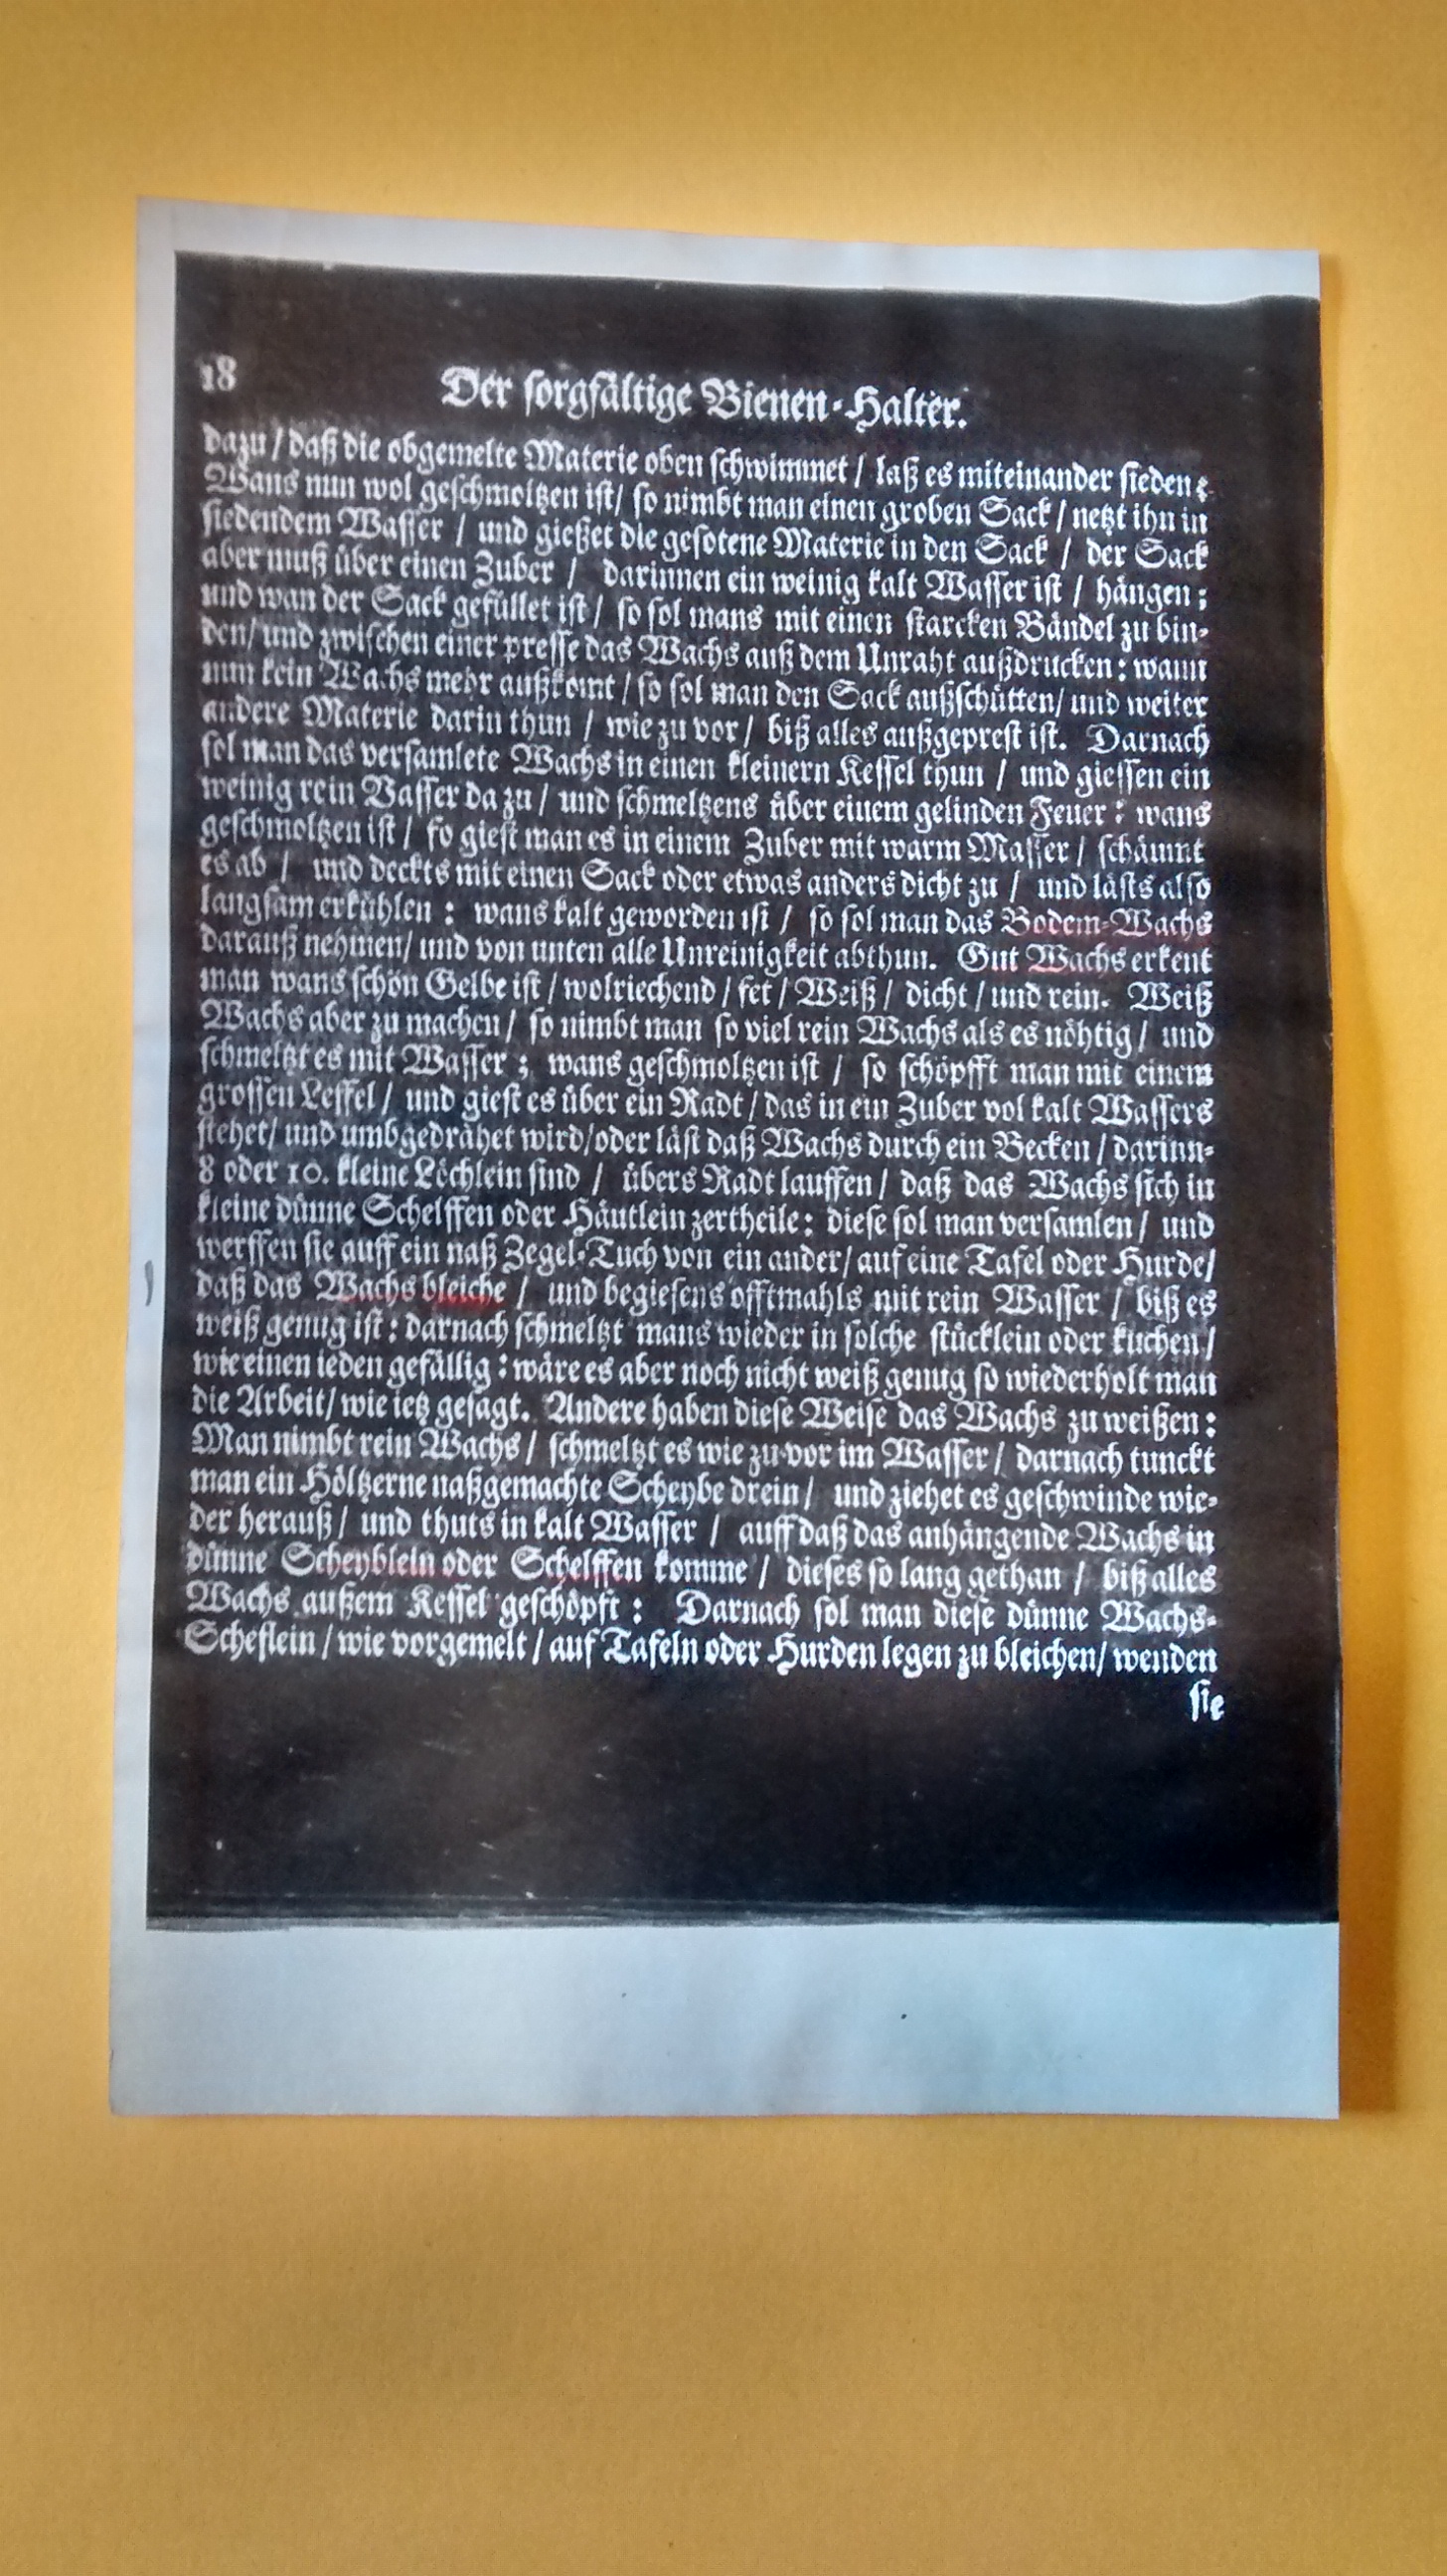 18
Der sorgfältige Bienen-Halter.
dazu / daß die obgemelte Materie oben schwimmet / laß es miteinander sieden:
Wans nun wol geschmoltzen ist / so nimbt man einen groben Sack / netzt ihn in
siedendem Wasser / und gießet die gesotene Materie in den Sack / der Sack
aber muß über einen Zuber / darinnen ein weinig kalt Wasser ist / hängen;
und wan der Sack gefüllet ist / so sol mans mit einen starcken Bändel zu bin-
den / und zwischen einer presse das Wachs auß dem Unraht außdrucken: wann
nun kein Wachs mehr außkomt / so sol man den Sack außschütten / und weiter
andere Materie darin thun / wie zu vor / biß alles außgeprest ist. Darnach
sol man das versamlete Wachs in einen kleinern Kessel thun / und giessen ein
weinig rein Vasser da zu / und schmeltzens über einem gelinden Feuer: wans
geschmoltzen ist / so giest man es in einem Zuber mit warm Masser / schäumt
es ab / und deckts mit einen Sack oder etwas anders dicht zu / und läßts also
langsam erkühlen: wans kalt geworden ist / so sol man das Bodem-Wachs
darauß nehmen / und von unten alle Unreinigkeit abthun. Gut Wachs erkent
man wans schön Gelbe ist / wolriechend / fet / Weiß / dicht / und rein. Weiß
Wachs aber zu machen / so nimbt man so viel rein Wachs als es nöhtig / und
schmeltzt es mit Wasser; wans geschmoltzen ist / so schöpfft man mit einem
grossen Leffel / und giest es über ein Radt / das in ein Zuber vol kalt Wassers
stehet / und umbgedrähet wird / oder läst daß Wachs durch ein Becken / darinn-
8 oder 10. kleine Löchlein sind / übers Radt lauffen / daß das Wachs sich in
kleine dünne Schelffen oder Häutlein zertheile: diese sol man versamlen / und
werffen sie auff ein naß Zegel-Tuch von ein ander / auf eine Tafel oder Hurde /
daß das Wachs bleiche / und begiesens offtmahls mit rein Wasser / biß es
weiß genug ist: darnach schmeltzt mans wieder in solche stücklein oder kuchen /
wie einen ieden gefällig: wäre es aber noch nicht weiß genug so wiederholt man
die Arbeit / wie ietz gesagt. Andere haben diese Weise das Wachs zu weißen:
Man nimbt rein Wachs / schmeltzt es wie zu vor im Wasser / darnach tunckt
man ein Höltzerne naßgemachte Scheybe drein / und ziehet es geschwinde wie-
der herauß / und thuts in kalt Wasser / auff daß das anhängende Wachs in
dünne Scheyblein oder Schelffen komme / dieses so lang gethan / biß alles
Wachs außem Kessel geschöpft: Darnach sol man diese dünne Wachs-
Scheflein / wie vorgemelt / auf Tafeln oder Hurden legen zu bleichen / wenden
sie